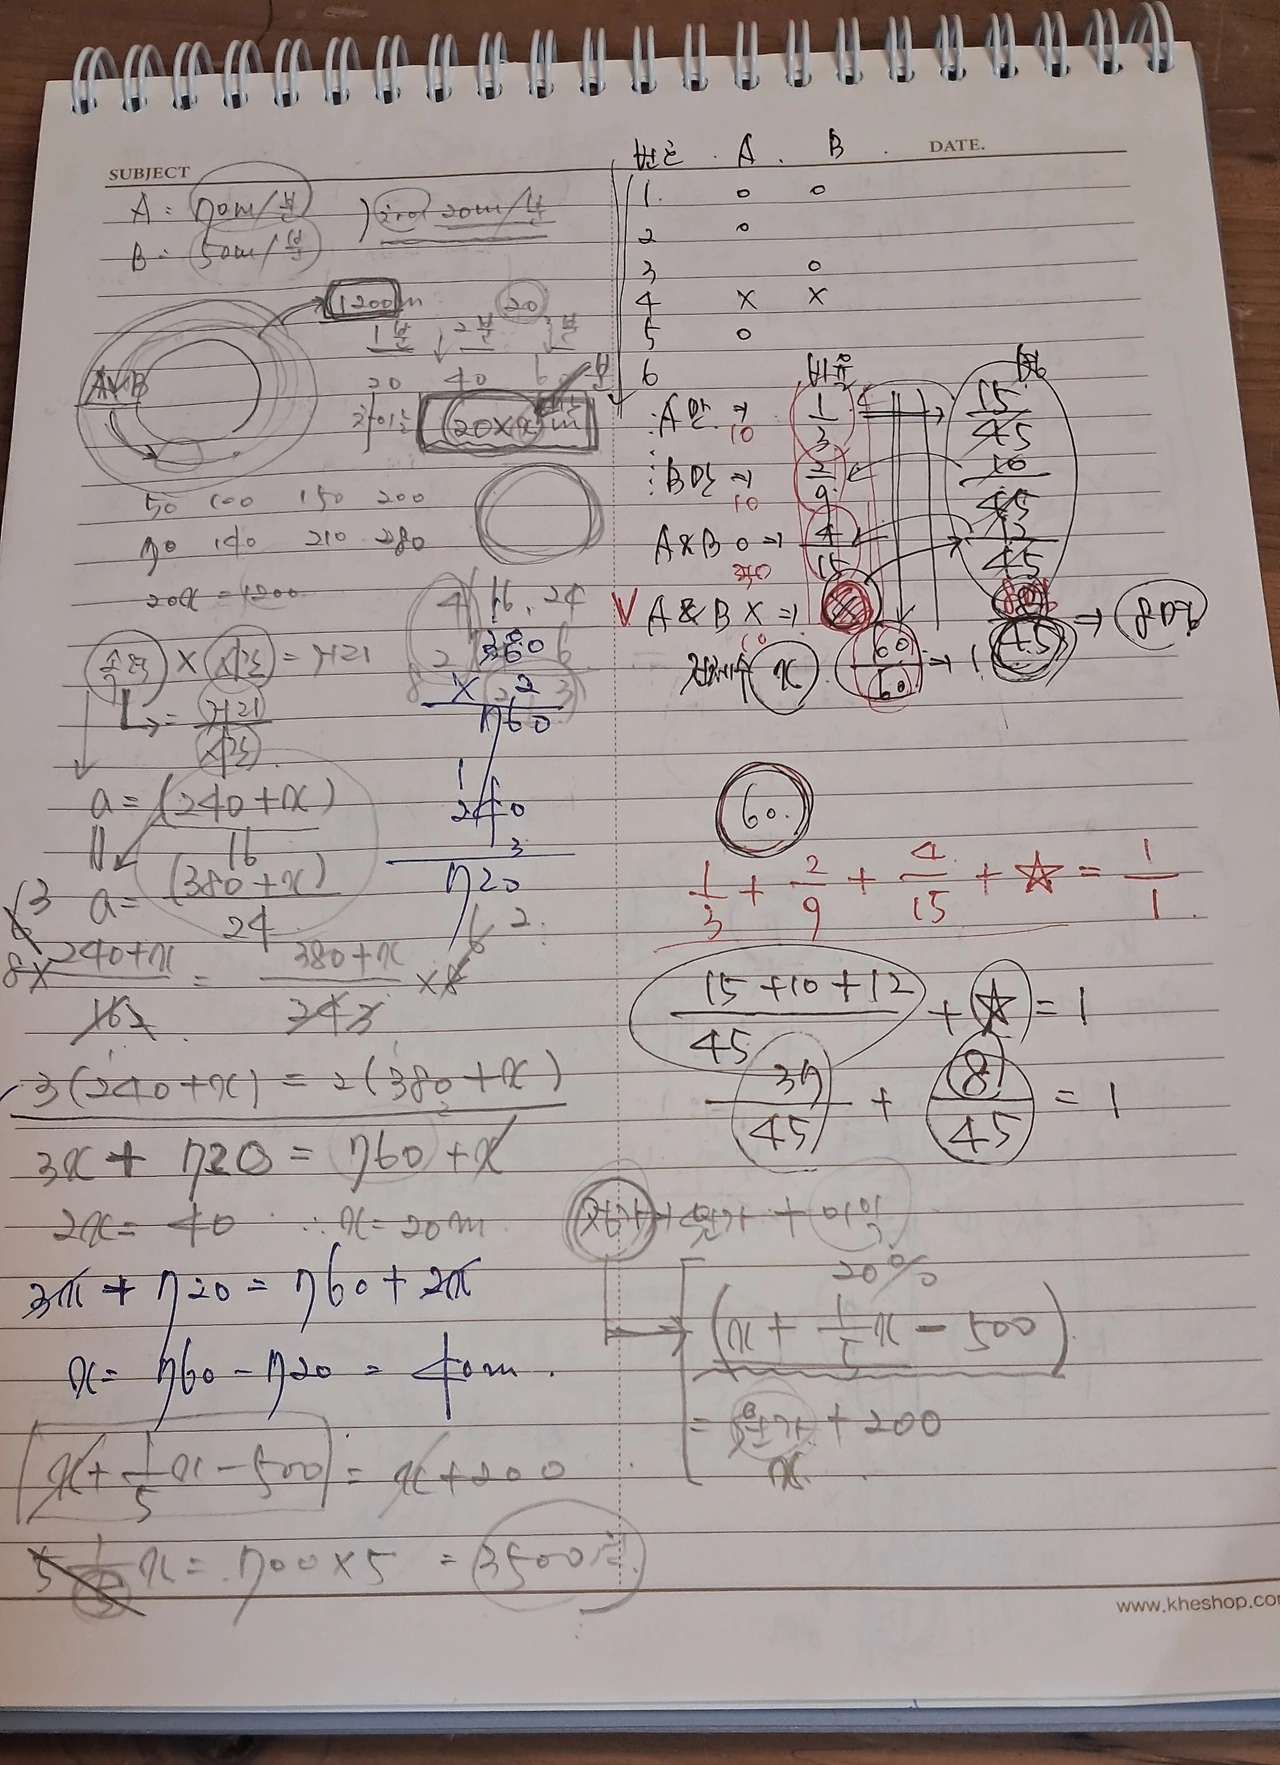 SUBJECT
DATE.
A = 70m/분
B = 50m/분
20m/분
1200m
20
1분 2분 분
20 40 6
A B
차이는 20×x m
50 100 150 200
70 140 210 280
20x = 1200
속력 × 시간 = 거리
= 거리
시간
a = (240+x)
16
a = (380+x)
24
4 16, 24
2 6
8 2 3
380
× 2
760
1
240
3
720
6 2
3
8× 240+x = 380+x ×8
16 2 24 3
3(240+x) = 2(380+x)
3x + 720 = 760 + x
2x = 40 ∴ x = 20m
3x + 720 = 760 + 2x
x = 760 - 720 = 40m.
x + 1/5 x - 500 = x + 200
5 1/5 x = 700×5 = 3500원
번호 . A . B .
1. o o
2 o
3 o
4 x x
5 o
6
비율
A만 → 1/3 15/45
10
B만 → 2/9 10/45
10
A&B o → 4/15 12/45
V A&B X → 45 → 8명
10
x 60/60 → 1
60.
1/3 + 2/9 + 4/15 + ☆ = 1/1
15+10+12
45 + ☆ = 1
37/45 + 8/45 = 1
정가 = 원가 + 이익
20%
(x + 1/5 x - 500)
= 원가 + 200
x
www.kheshop.co